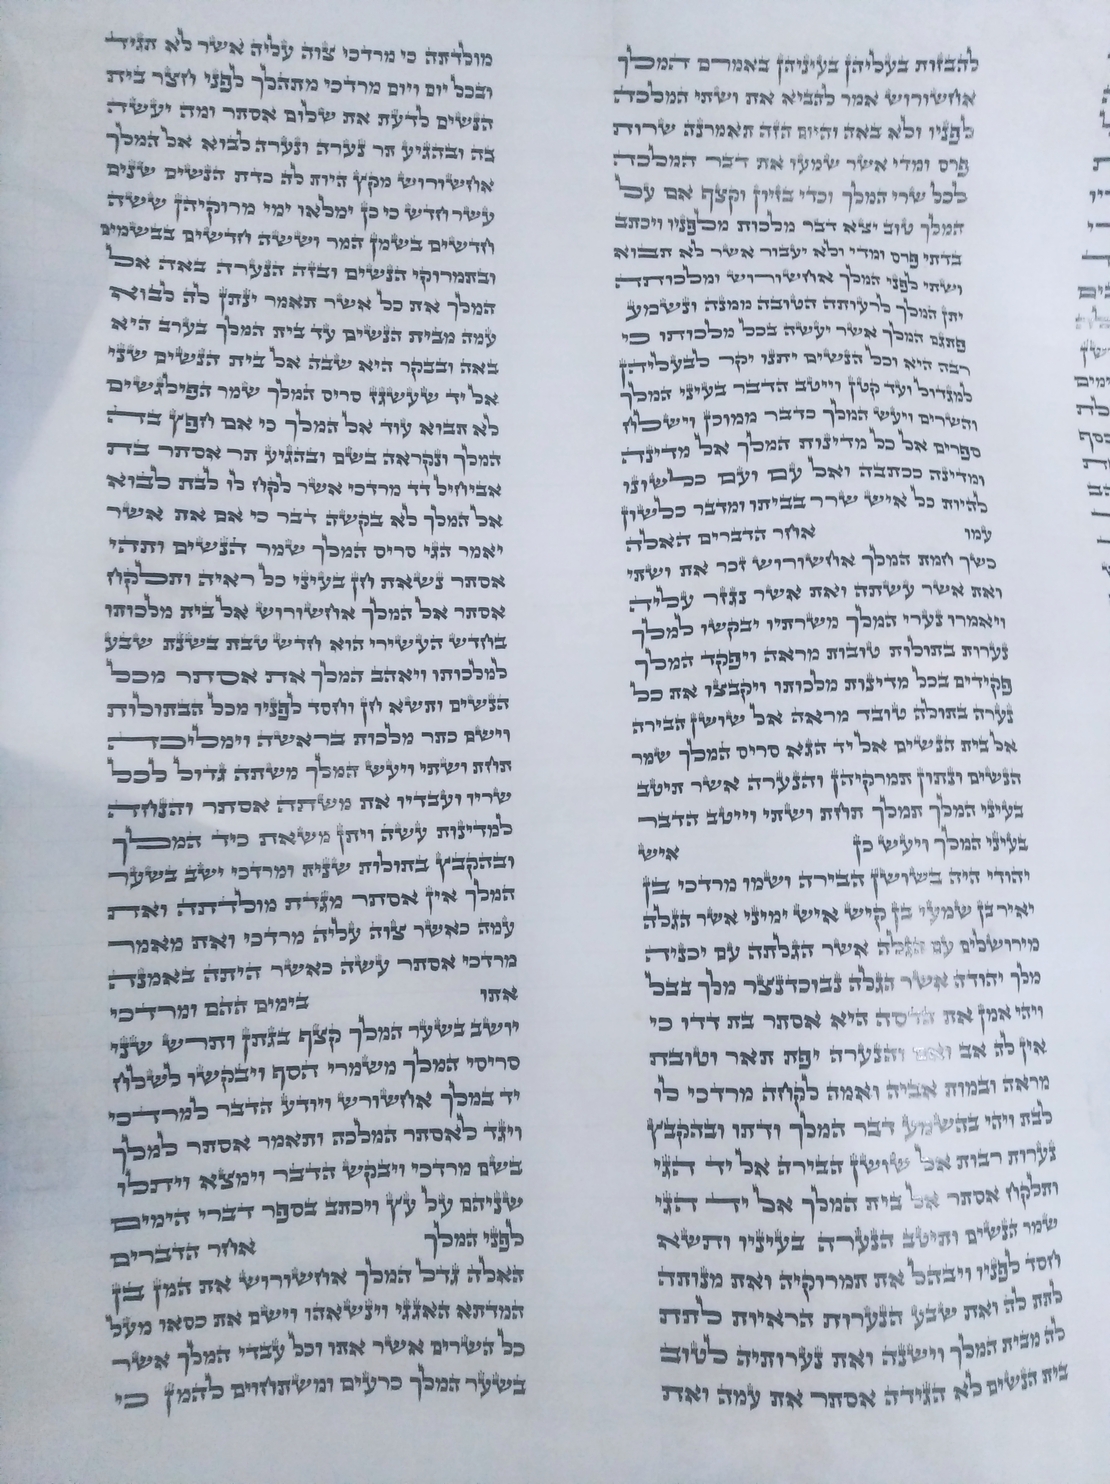 להבזות בעליהן בעיניהן באמרם המלך
אחשורוש אמר להביא את ושתי המלכה
לפניו ולא באה והיום הזה תאמרנה שרות
פרס ומדי אשר שמעו את דבר המלכה
לכל שרי המלך וכדי בזיון וקצף אם על
המלך טוב יצא דבר מלכות מלפניו ויכתב
בדתי פרס ומדי ולא יעבור אשר לא תבוא
ושתי לפני המלך אחשורוש ומלכותה
יתן המלך לרעותה הטובה ממנה ונשמע
פתגם המלך אשר יעשה בכל מלכותו כי
רבה היא וכל הנשים יתנו יקר לבעליהן
למגדול ועד קטן וייטב הדבר בעיני המלך
והשרים ויעש המלך כדבר ממוכן וישלח
ספרים אל כל מדינות המלך אל מדינה
ומדינה ככתבה ואל עם ועם כלשונו
להיות כל איש שרר בביתו ומדבר כלשון
עמו אחר הדברים האלה
כשך חמת המלך אחשורוש זכר את ושתי
ואת אשר עשתה ואת אשר נגזר עליה
ויאמרו נערי המלך משרתיו יבקשו למלך
נערות בתולות טובות מראה ויפקד המלך
פקידים בכל מדינות מלכותו ויקבצו את כל
נערה בתולה טובת מראה אל שושן הבירה
אל בית הנשים אל יד הגא סריס המלך שמר
הנשים ונתון תמרקיהן והנערה אשר תיטב
בעיני המלך תמלך תחת ושתי וייטב הדבר
בעיני המלך ויעש כן איש
יהודי היה בשושן הבירה ושמו מרדכי בן
יאיר בן שמעי בן קיש איש ימיני אשר הגלה
מירושלים עם הגלה אשר הגלתה עם יכניה
מלך יהודה אשר הגלה נבוכדנצר מלך בבל
ויהי אמן את הדסה היא אסתר בת דדו כי
אין לה אב ואם והנערה יפת תאר וטובת
מראה ובמות אביה ואמה לקחה מרדכי לו
לבת ויהי בהשמע דבר המלך ודתו ובהקבץ
נערות רבות אל שושן הבירה אל יד הגי
ותלקח אסתר אל בית המלך אל יד הגי
שמר הנשים ותיטב הנערה בעיניו ותשא
חסד לפניו ויבהל את תמרוקיה ואת מנותה
לתת לה ואת שבע הנערות הראיות לתת
לה מבית המלך וישנה ואת נערותיה לטוב
בית הנשים לא הגידה אסתר את עמה ואת
מולדתה כי מרדכי צוה עליה אשר לא תגיד
ובכל יום ויום מרדכי מתהלך לפני חצר בית
הנשים לדעת את שלום אסתר ומה יעשה
בה ובהגיע תר נערה ונערה לבוא אל המלך
אחשורוש מקץ היות לה כדת הנשים שנים
עשר חדש כי כן ימלאו ימי מרוקיהן ששה
חדשים בשמן המר וששה חדשים בבשמים
ובתמרוקי הנשים ובזה הנערה באה אל
המלך את כל אשר תאמר ינתן לה לבוא
עמה מבית הנשים עד בית המלך בערב היא
באה ובבקר היא שבה אל בית הנשים שני
אל יד שעשגז סריס המלך שמר הפילגשים
לא תבוא עוד אל המלך כי אם חפץ בה
המלך ונקראה בשם ובהגיע תר אסתר בת
אביחיל דד מרדכי אשר לקח לו לבת לבוא
אל המלך לא בקשה דבר כי אם את אשר
יאמר הגי סריס המלך שמר הנשים ותהי
אסתר נשאת חן בעיני כל ראיה ותלקח
אסתר אל המלך אחשורוש אל בית מלכותו
בחדש העשירי הוא חדש טבת בשנת שבע
למלכותו ויאהב המלך את אסתר מכל
הנשים ותשא חן וחסד לפניו מכל הבתולות
וישם כתר מלכות בראשה וימליכה
תחת ושתי ויעש המלך משתה גדול לכל
שריו ועבדיו את משתה אסתר והנחה
למדינות עשה ויתן משאת כיד המלך
ובהקבץ בתולות שנית ומרדכי ישב בשער
המלך אין אסתר מגדת מולדתה ואת
עמה כאשר צוה עליה מרדכי ואת מאמר
מרדכי אסתר עשה כאשר היתה באמנה
אתו בימים ההם ומרדכי
יושב בשער המלך קצף בגתן ותרש שני
סריסי המלך משמרי הסף ויבקשו לשלח
יד במלך אחשורש ויודע הדבר למרדכי
ויגד לאסתר המלכה ותאמר אסתר למלך
בשם מרדכי ויבקש הדבר וימצא ויתלו
שניהם על עץ ויכתב בספר דברי הימים
לפני המלך אחר הדברים
האלה גדל המלך אחשורוש את המן בן
המדתא האגגי וינשאהו וישם את כסאו מעל
כל השרים אשר אתו וכל עבדי המלך אשר
בשער המלך כרעים ומשתחוים להמן כי